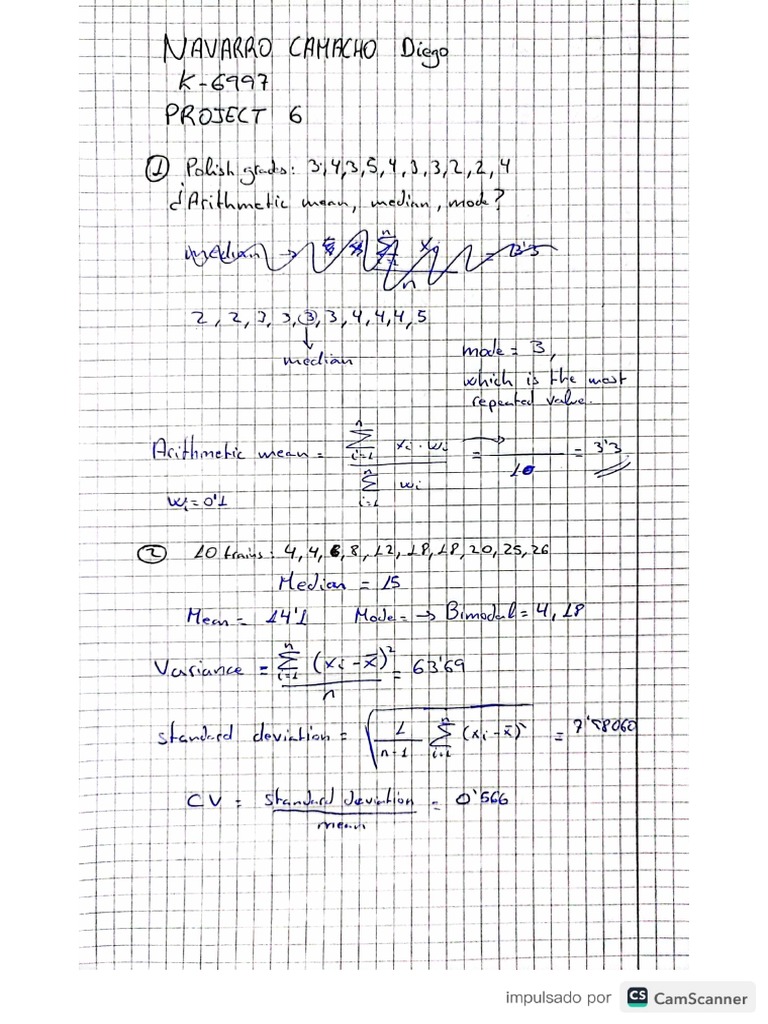 NAVARRO CAMACHO Diego
K-6997
PROJECT 6
① Polish grades: 3,4,3,5,4,3,3,2,2,4
¿Arithmetic mean, median, mode?
median →
2, 2, 3, 3, ③, 3, 4, 4, 4, 5
↓
median
mode = 3,
which is the most
repeated value.
Arithmetic mean = \frac{\sum_{i=1}^{n} x_i · w_i}{\sum_{i=1}^{n} w_i} = \frac{→}{10} = 3'3
w_i = 0'1
② 10 trains: 4, 4, 6, 8, 12, 18, 18, 20, 25, 26
Median = 15
Mean = 14'1 Mode = → Bimodal = 4, 18
Variance = \frac{\sum_{i=1}^{n} (x_i - \bar{x})^2}{n} = 63'69
standard deviation = \sqrt{\frac{1}{n-1} \sum_{i=1}^{n} (x_i - \bar{x})^2} = 7'98060
CV = \frac{standard deviation}{mean} = 0'566
impulsado por CS CamScanner